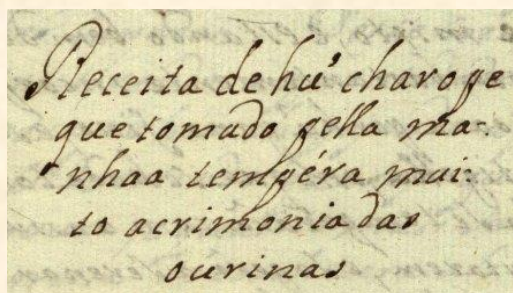 Receita de hu' charope
que tomado pella ma-
nhaa tempéra mui-
to acrimonia das
ourinas